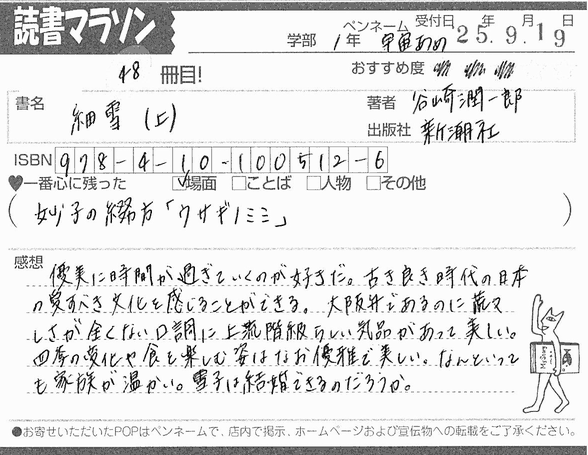 読書マラソン
学部 1年 ペンネーム 宇宙あめ 受付日 25年.9月.19日
48 冊目!
おすすめ度
書名 細雪(上)
著者 谷崎潤一郎
出版社 新潮社
ISBN 978-4-10-100512-6
♥一番心に残った ☑場面 □ことば □人物 □その他
(妙子の綴方「ウサギノミミ」)
感想
優美に時間が過ぎていくのが好きだ。古き良き時代の日本
の美すべき文化を感じることができる。大阪弁であるのに荒々
しさが全くない口調に上流階級らしい気品があって美しい。
四季の変化や食を楽しむ姿はなお優雅で美しい。なんといって
も家族が温かい。雪子は結婚できるのだろうか。
●お寄せいただいたPOPはペンネームで、店内で掲示、ホームページおよび宣伝物への転載をご了承ください。